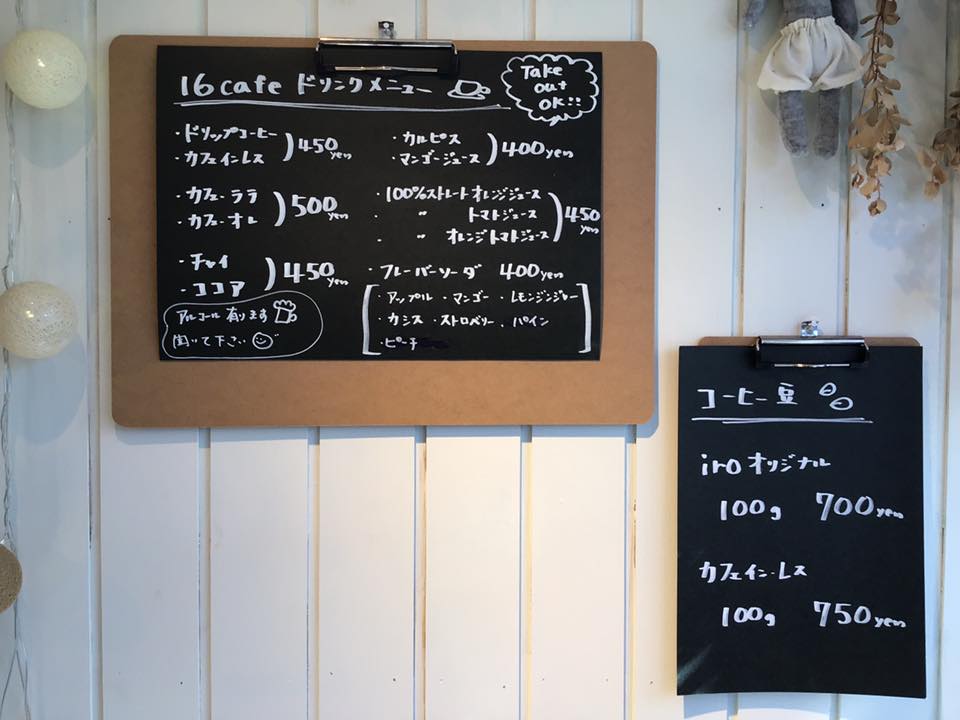 16cafe ドリンクメニュー
Take
out
OK!!
・ドリップコーヒー
・カフェインレス
450yen
・カフェ・ラテ
・カフェ・オレ
500yen
・チャイ
・ココア
450yen
アルコール有ります
聞いて下さい
・カルピス
・マンゴージュース
400yen
・100%ストレートオレンジジュース
・ 〃 トマトジュース
・ 〃 オレンジトマトジュース
450yen
・フレーバーソーダ 400yen
・アップル ・マンゴー ・レモンジンジャー
・カシス ・ストロベリー ・パイン
・ピーチ
コーヒー豆
iroオリジナル
100g 700yen
カフェイン・レス
100g 750yen